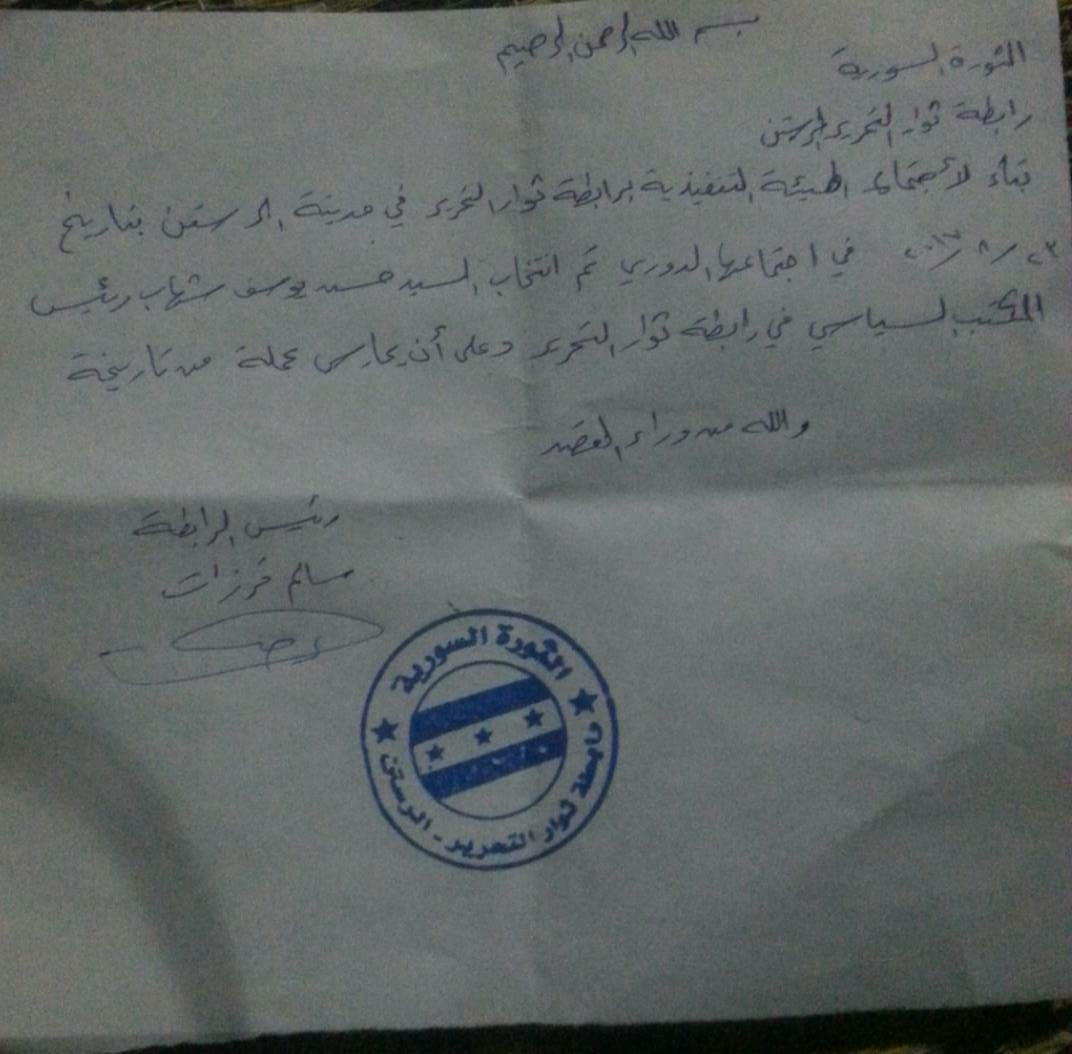 بسم الله الرحمن الرحيم
الثورة السورية
رابطة ثوار التحرير الرستن
بناء لأجتماع الهيئة التنفيذية برابطة ثوار التحرير في مدينة الرستن بتاريخ
٢٣/٨/٢٠١٣ في اجتماعها الدوري تم انتخاب السيد حسن يوسف شهاب رئيس
المكتب السياسي في رابطة ثوار التحرير وعلى أن يمارس عملة من تاريخة
والله من وراء القصد
رئيس الرابطة
سالم فرزات
الثورة السورية
رابطة ثوار التحرير - الرستن